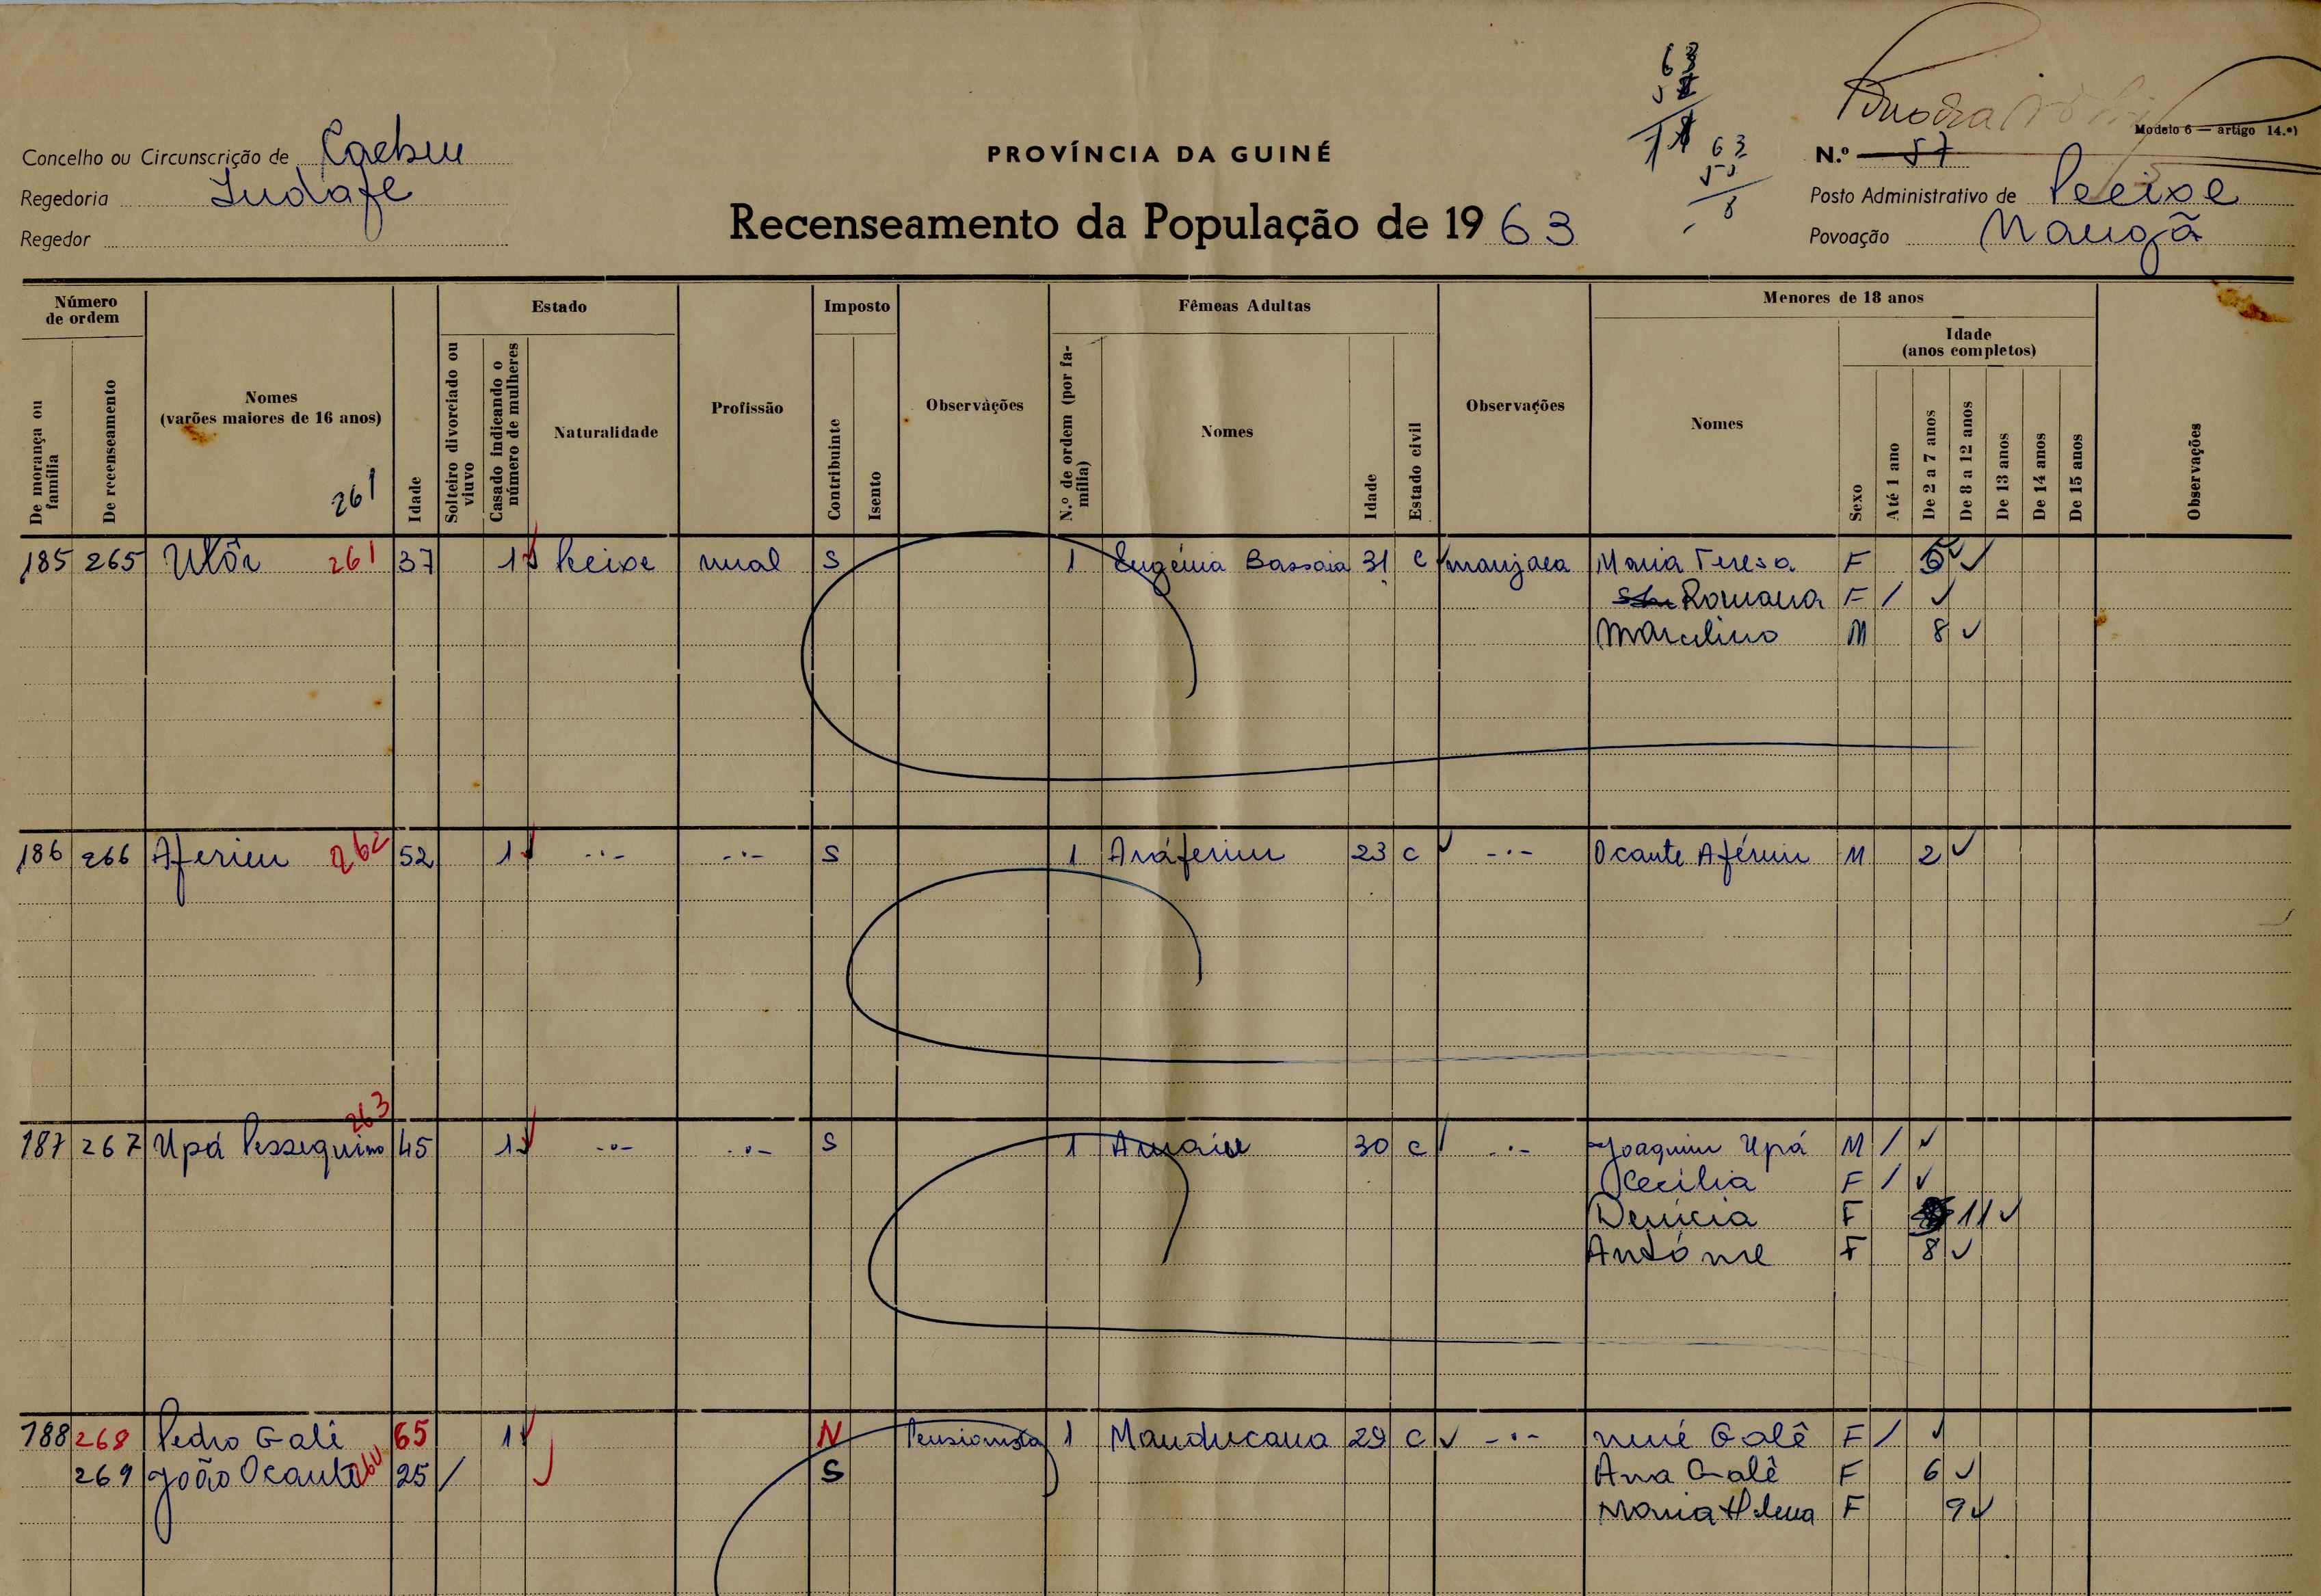 63
Modelo 6 — artigo 14.º)
Concelho ou Circunscrição de
PROVÍNCIA DA GUINÉ
63
N.º 57
Regedoria
Posto Administrativo de Pecixe
Regedor
Recenseamento da População de 1963
Povoação Nangã
Número de ordem
Estado
Imposto
Fêmeas Adultas
Menores de 18 anos
Idade (anos completos)
De morança ou família
De recenseamento
Nomes (varões maiores de 16 anos)
261
Idade
Solteiro divorciado ou viuvo
Casado indicando o número de mulheres
Naturalidade
Profissão
Contribuinte
Isento
Observações
N.º de ordem (por família)
Nomes
Idade
Estado civil
Observações
Nomes
Sexo
Até 1 ano
De 2 a 7 anos
De 8 a 12 anos
De 13 anos
De 14 anos
De 15 anos
Observações
185 265 Ulôn 261 37 1 Pecixe rural S 1 Eugénia Bassaia 31 C manjaca Maria Teresa F 5
Romana F /
Marculino M 8
186 266 Aferien 262 52 1 -·- -·- S 1 Anáferim 23 C -·- Ocante Aférim M 2
263
187 267 Upá Pessequimo 45 1 -·- -·- S 1 30 C -·- Joaquim Upá M /
Cecilia F /
Denicia F 11
Antóme F 8
188 268 Pedro Galé 65 1 N Pensionista 1 Manducana 29 C -·- nené Galê F /
269 João Ocante 264 25 / S Ana Galê F 6
Maria Helena F 9